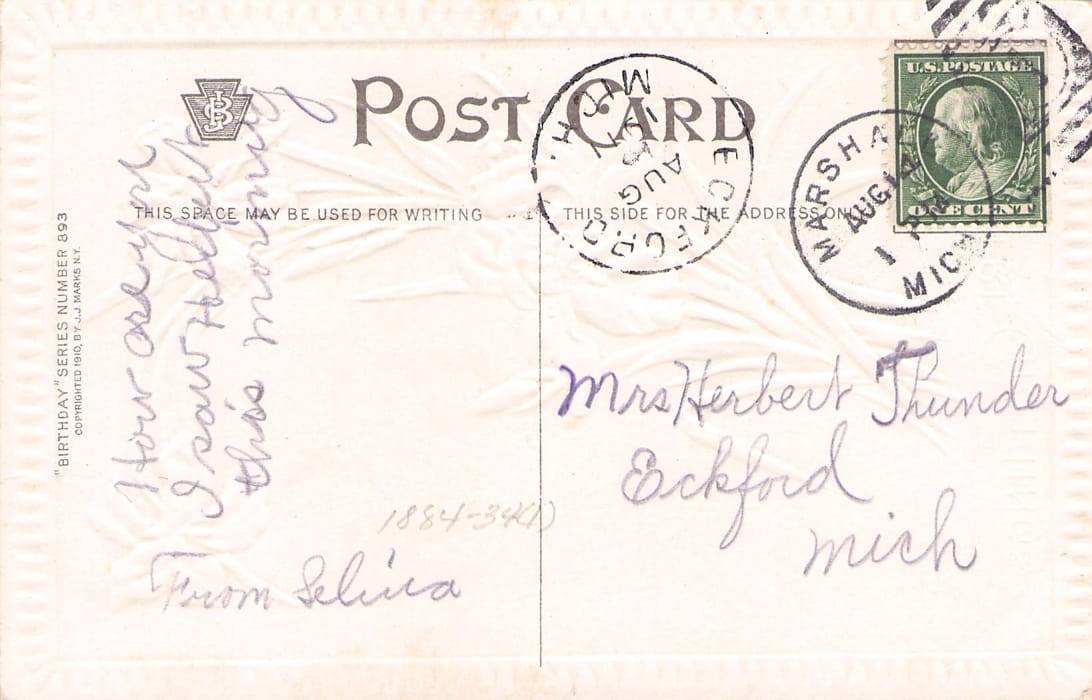 POST CARD
THIS SPACE MAY BE USED FOR WRITING
THIS SIDE FOR THE ADDRESS ONLY
"BIRTHDAY" SERIES NUMBER 893
COPYRIGHTED 1910, BY J.J. MARKS N.Y.
How are you
I saw
this morning
From Selina
1884-34(1)
ECKFORD
AUG
15
MICH.
MARSHA
AUG 14
1 PM
MICH
U.S. POSTAGE
ONE CENT
Mrs Herbert Thunder
Eckford
Mich